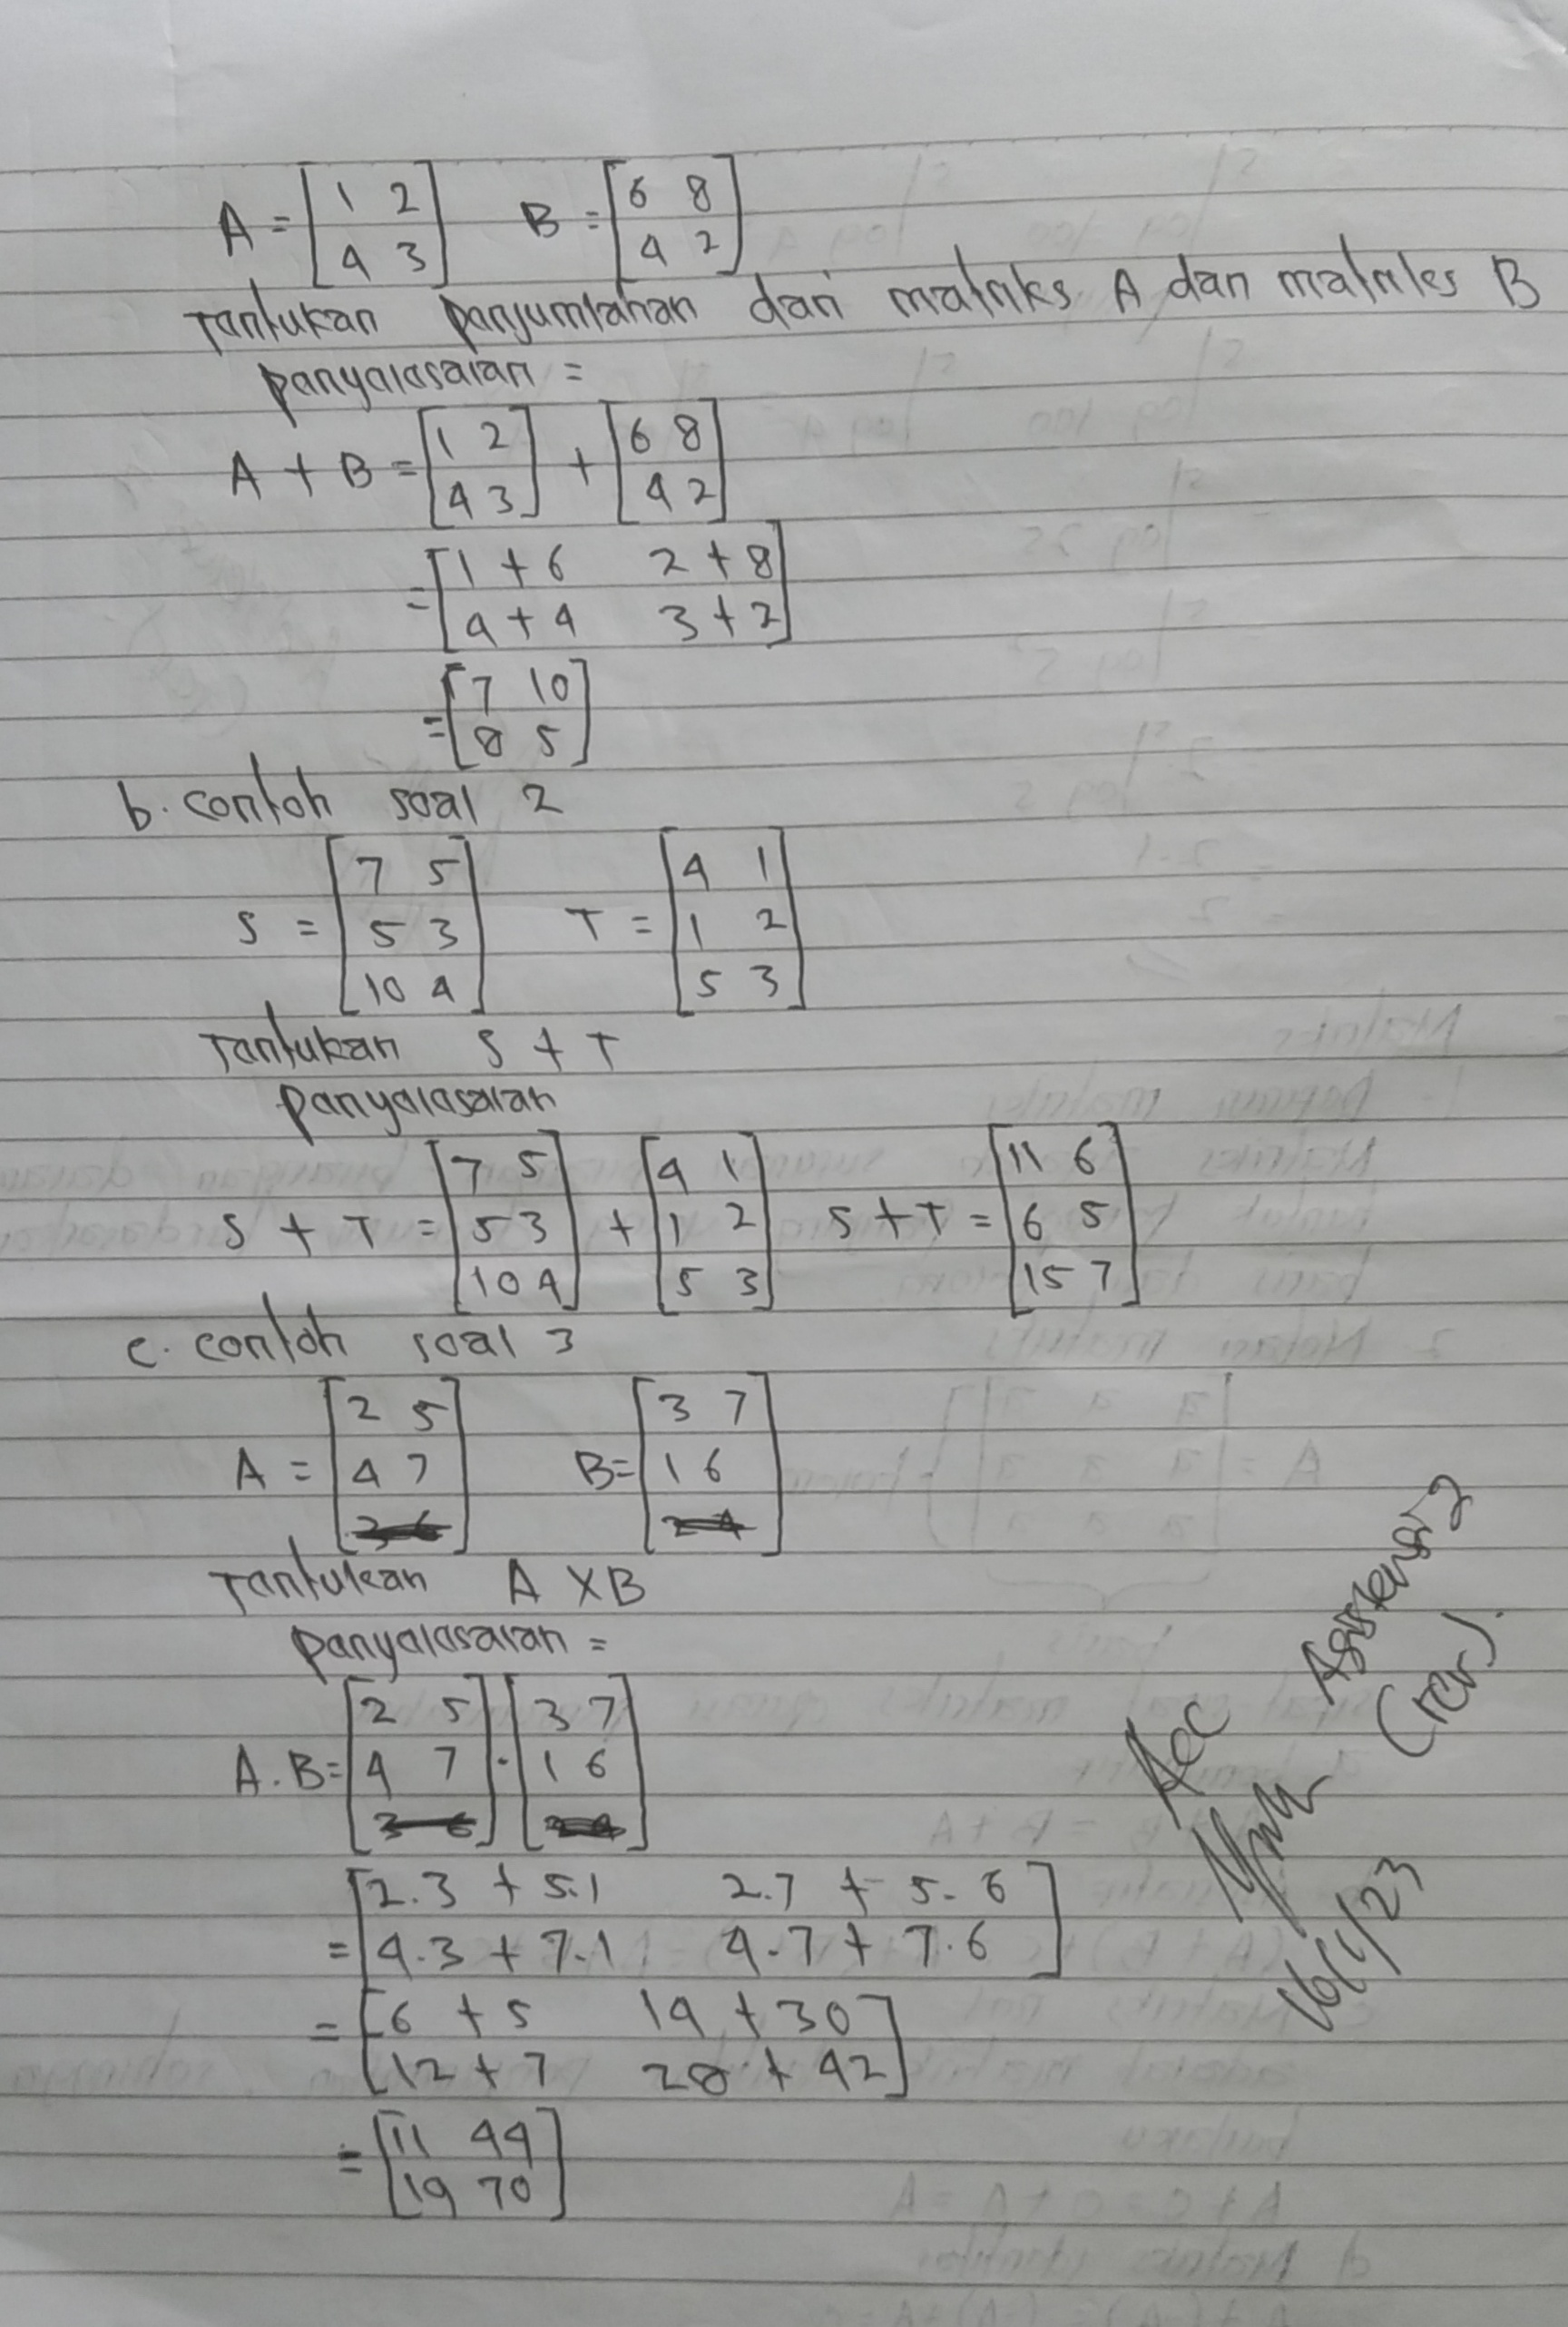 A = [1 2
4 3] B = [6 8
4 2]
Tantukan panjumlahan dari matriks A dan matriks B
panyalasaian =
A + B = [1 2
4 3] + [6 8
4 2]
= [1 + 6 2 + 8
4 + 4 3 + 2]
= [7 10
8 5]
b. contoh soal 2
S = [7 5
5 3
10 4] T = [4 1
1 2
5 3]
Tantukan S + T
panyalasaian
S + T = [7 5
5 3
10 4] + [4 1
1 2
5 3] S + T = [11 6
6 5
15 7]
c. contoh soal 3
A = [2 5
4 7
3 6] B = [3 7
1 6
2 4]
Tantukan A X B
panyalasaian =
A . B = [2 5
4 7
3 6] . [3 7
1 6]
= [2.3 + 5.1 2.7 + 5.6
4.3 + 7.1 4.7 + 7.6]
= [6 + 5 14 + 30
12 + 7 28 + 42]
= [11 44
19 70]
Acc Asistensi 2